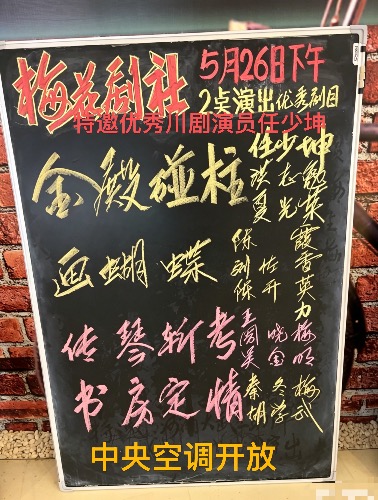 梅花剧社 5月26日下午
2点演出优秀剧目
特邀优秀川剧演员任少坤
金殿碰柱 任少坤
洪志
夏光荣
画蝴蝶 陈 霞
刘佐香
陈开英
传琴斩考 王 力
阎晓梅
吴金明
书房定情 秦冬梅
胡学武
中央空调开放